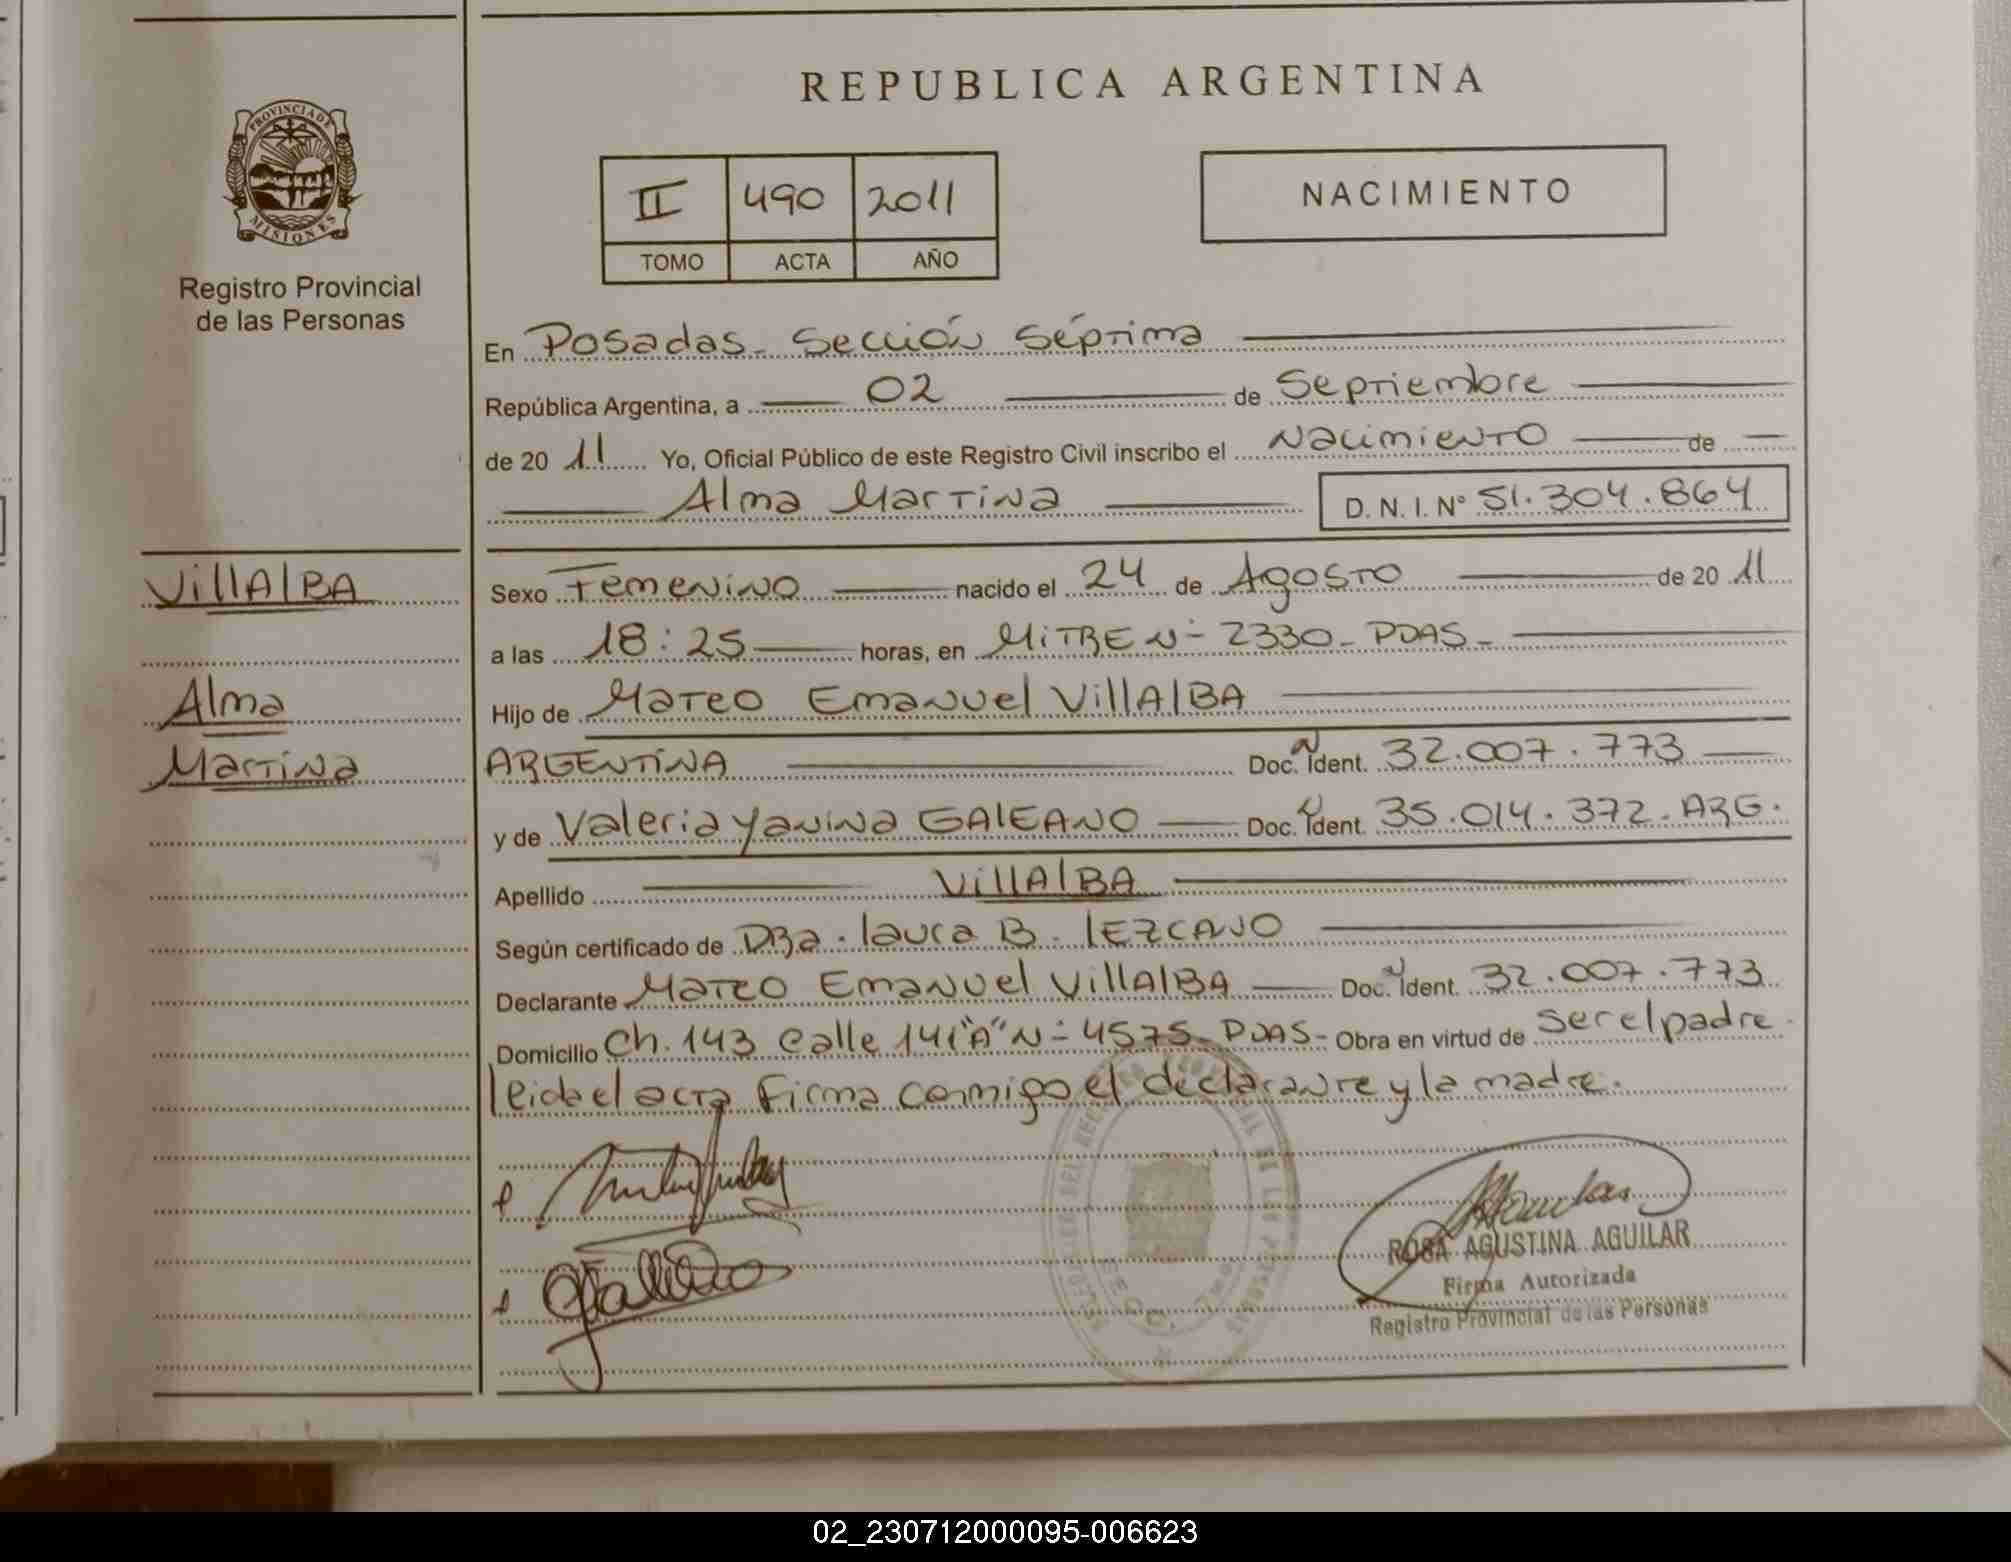 REPUBLICA ARGENTINA
PROVINCIA DE
MISIONES
Registro Provincial
de las Personas
II 490 2011
TOMO ACTA AÑO
NACIMIENTO
En Posadas - Sección Séptima
República Argentina, a 02 de Septiembre
de 2011 Yo, Oficial Público de este Registro Civil inscribo el Nacimiento de
Alma Martina D. N. I. Nº 51.304.864
VillAlBA
Alma
Martina
Sexo Femenino nacido el 24 de Agosto de 2011
a las 18:25 horas, en MiTRE N- 2330 - PDAS -
Hijo de Mateo Emanuel VillAlBA
ARGENTINA Doc. Ident. 32.007.773
y de Valeria Yanina GALEANO Doc. Ident. 35.014.372 - ARG.
Apellido VillAlBA
Según certificado de DRa. laura B. lEZCANO
Declarante Mateo Emanuel VillAlBA Doc. Ident. 32.007.773
Domicilio Ch. 143 Calle 141"A" N- 4575 - PDAS - Obra en virtud de ser el padre.
leida el acta firma conmigo el declarante y la madre.
ROSA AGUSTINA AGUILAR
Firma Autorizada
Registro Provincial de las Personas
02_230712000095-006623